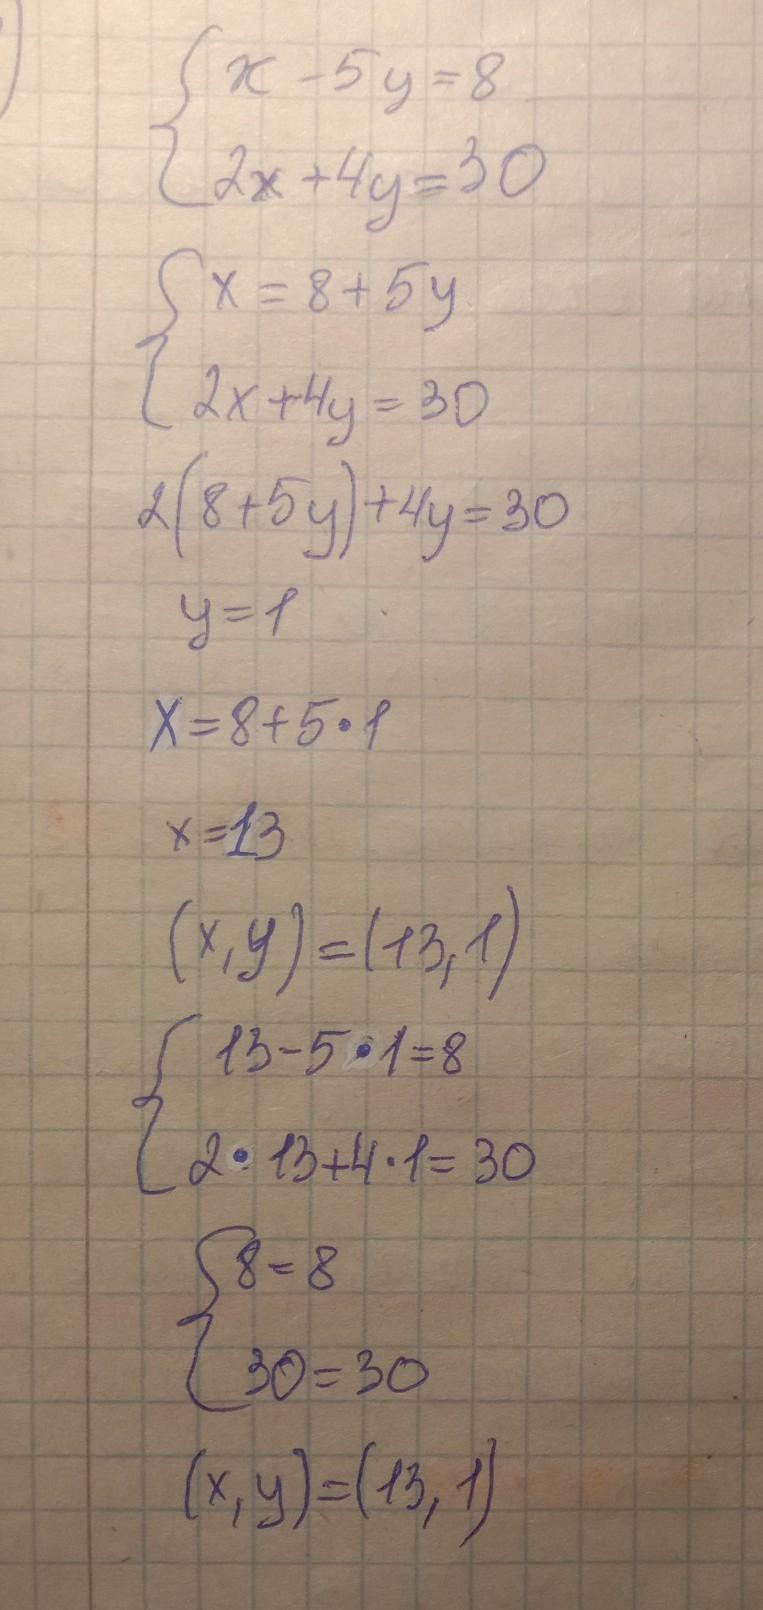 x - 5y = 8
2x + 4y = 30
x = 8 + 5y
2x + 4y = 30
2(8 + 5y) + 4y = 30
y = 1
x = 8 + 5 · 1
x = 13
(x, y) = (13, 1)
13 - 5 · 1 = 8
2 · 13 + 4 · 1 = 30
8 = 8
30 = 30
(x, y) = (13, 1)